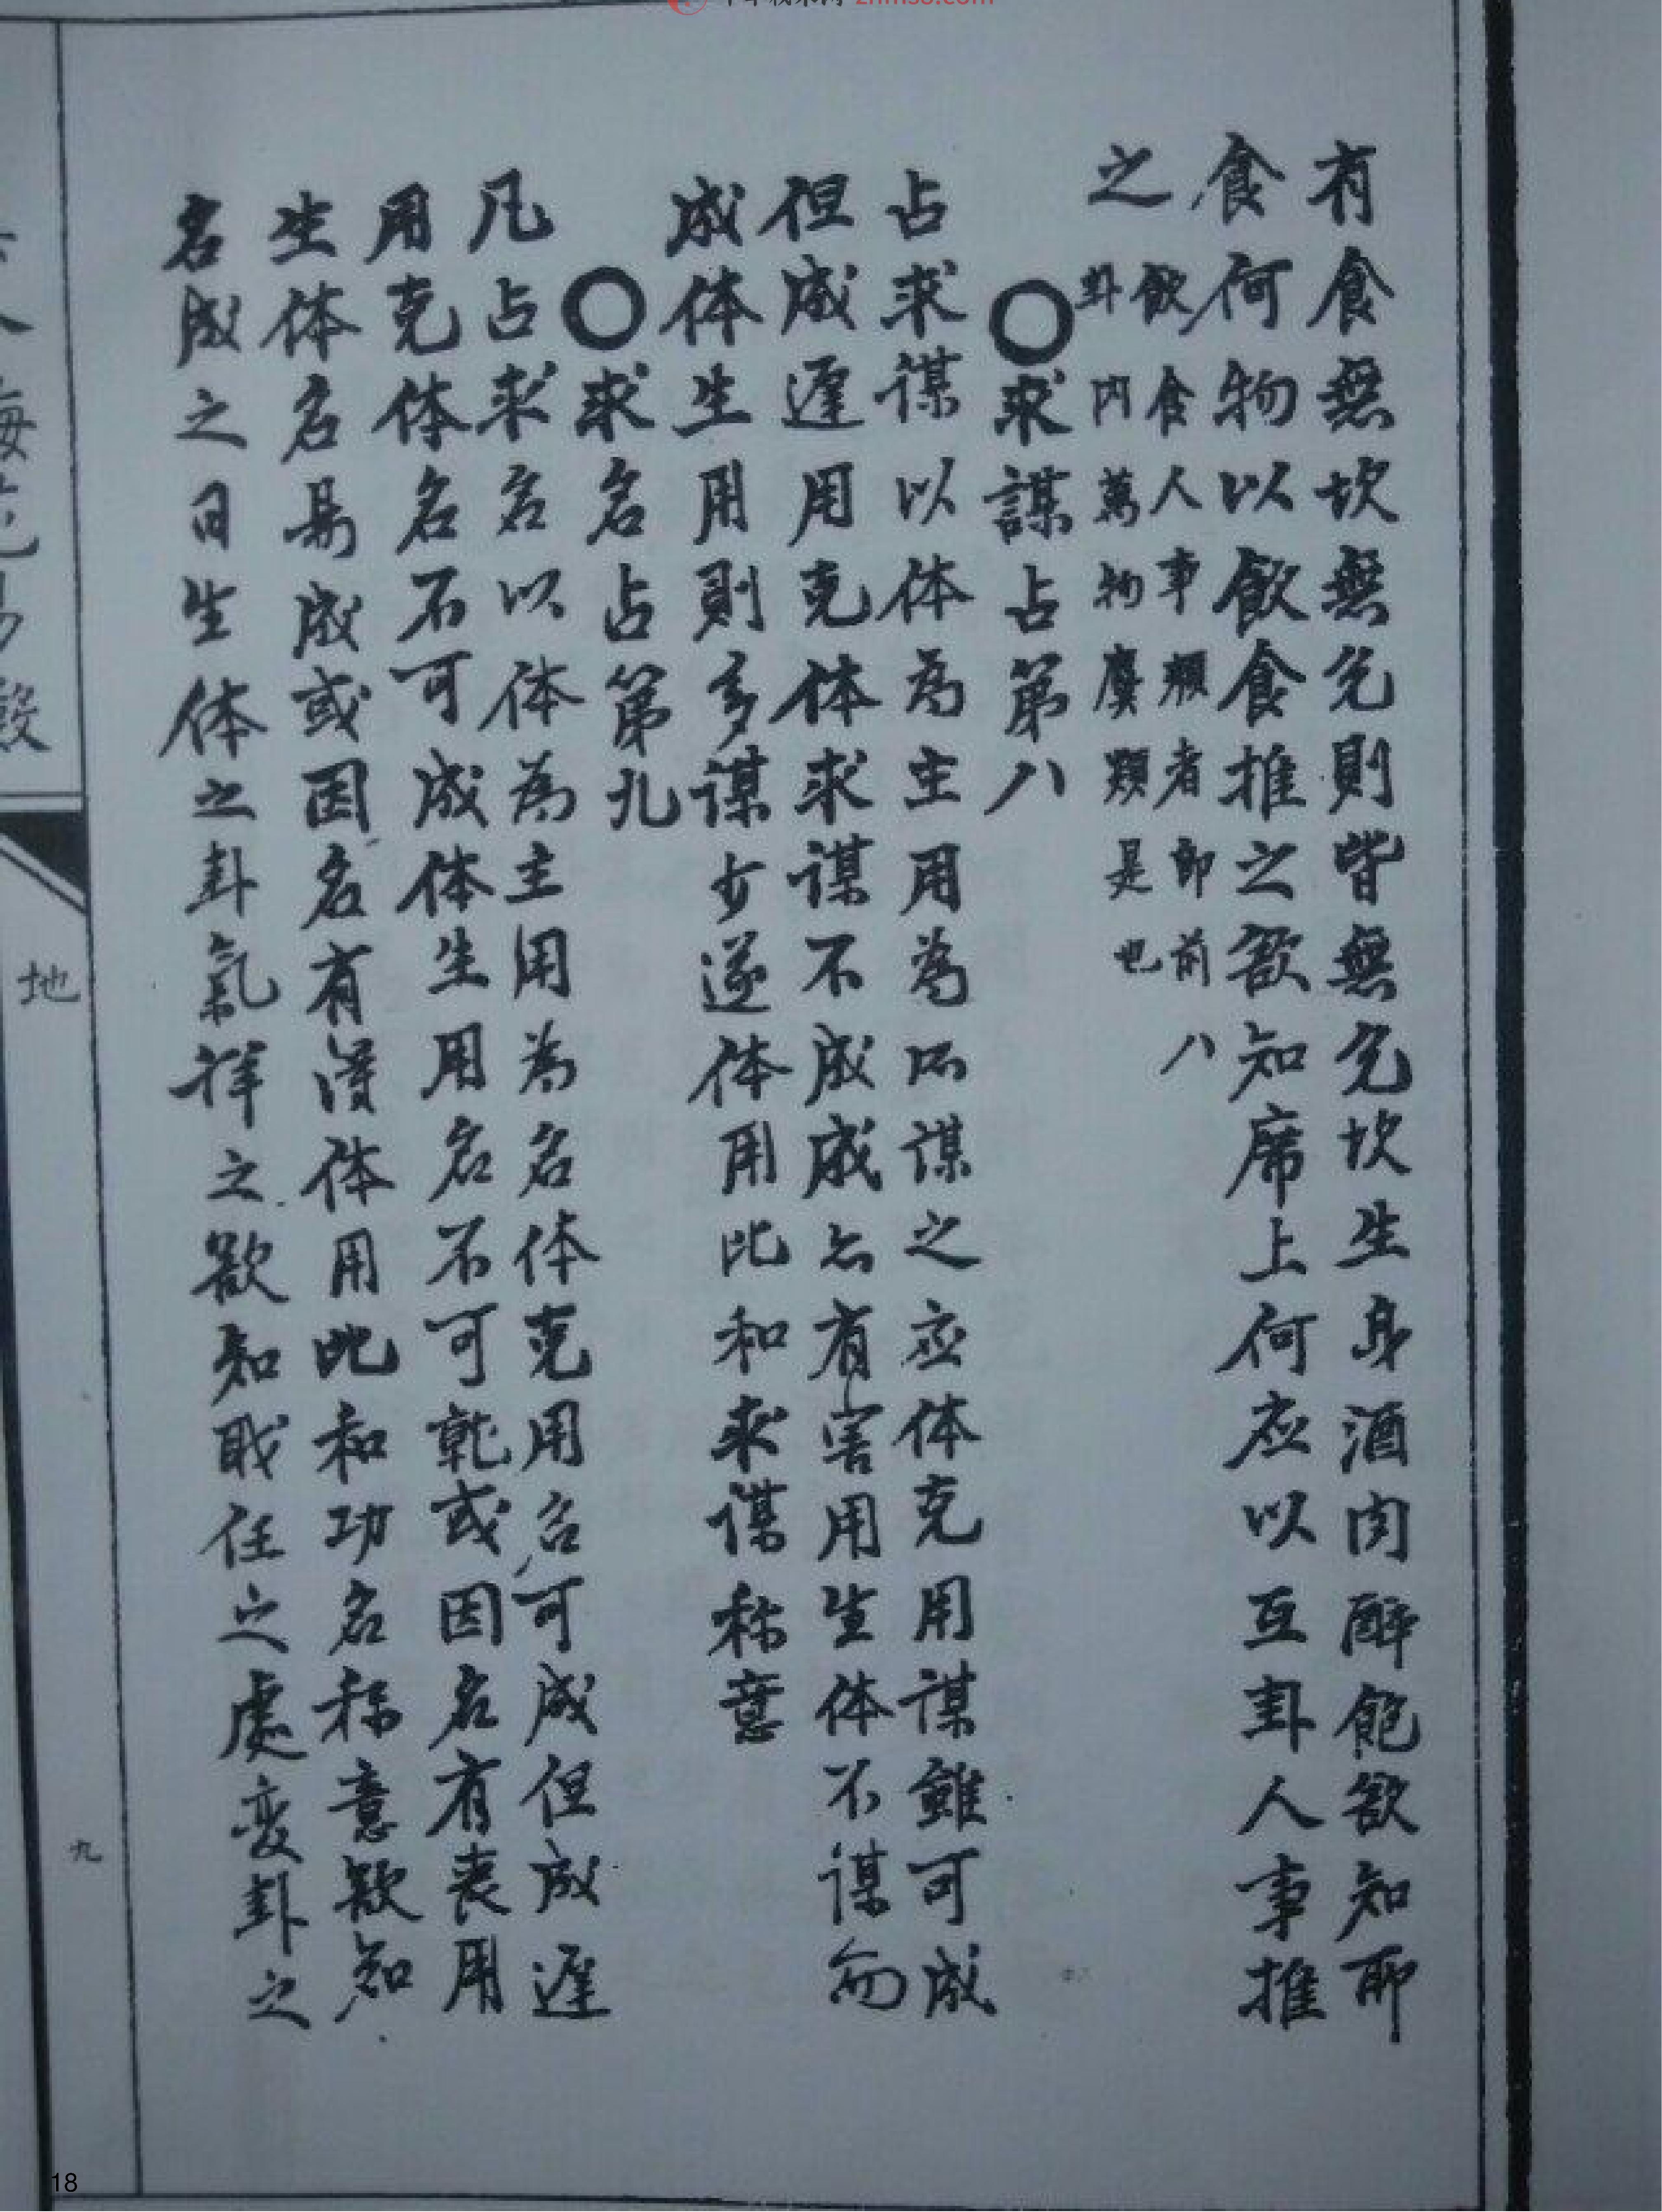 有食無坎無兌則皆無兌坎生身酒肉醉飽欲知所
食何物以飲食推之欲知席上何应以互卦人事推
之
飲食人事類者即前八
卦内萬物属類是也
○求謀占第八
占求谋以体為主用為所谋之应体克用谋雖可成
但成遲用克体求谋不成成亦有害用生体不谋而
成体生用則多谋少遂体用比和求谋称意
○求名占第九
凡占求名以体為主用為名体克用名可成但成遲
用克体名不可成体生用名不可就或因名有丧用
生体名易成或因名有得体用比和功名称意欲知
名成之日生体之卦氣祥之欲知职任之處变卦之
地
九
18
znm58.com